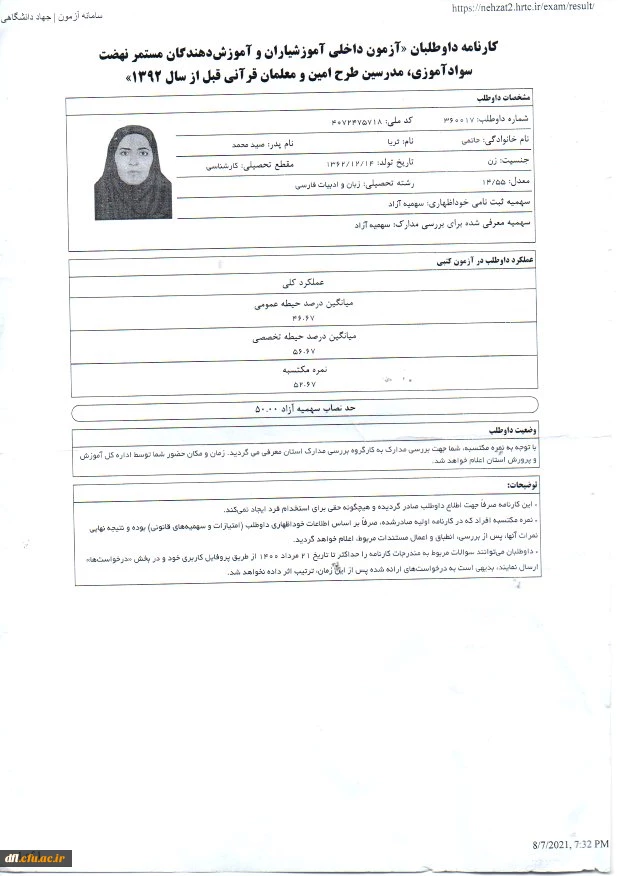 سامانه آزمون | جهاد دانشگاهی
https://nehzat2.hrtc.ir/exam/result/
کارنامه داوطلبان «آزمون داخلی آموزشیاران و آموزش‌دهندگان مستمر نهضت
سوادآموزی، مدرسین طرح امین و معلمان قرآنی قبل از سال ۱۳۹۲»
مشخصات داوطلب
شماره داوطلب: ۳۶۰۰۱۷ کد ملی: ۴۰۷۲۴۷۵۷۱۸
نام خانوادگی: حاتمی نام: ثریا نام پدر: صید محمد
جنسیت: زن تاریخ تولد: ۱۳۶۲/۱۲/۱۴ مقطع تحصیلی: کارشناسی
معدل: ۱۴/۵۵ رشته تحصیلی: زبان و ادبیات فارسی
سهمیه ثبت نامی خوداظهاری: سهمیه آزاد
سهمیه معرفی شده برای بررسی مدارک: سهمیه آزاد
عملکرد داوطلب در آزمون کتبی
عملکرد کلی
میانگین درصد حیطه عمومی
۴۶.۶۷
میانگین درصد حیطه تخصصی
۵۶.۶۷
نمره مکتسبه
۵۲.۶۷
حد نصاب سهمیه آزاد ۵۰.۰۰
وضعیت داوطلب
با توجه به نمره مکتسبه، شما جهت بررسی مدارک به کارگروه بررسی مدارک استان معرفی می گردید. زمان و مکان حضور شما توسط اداره کل آموزش
و پرورش استان اعلام خواهد شد.
توضیحات:
• این کارنامه صرفاً جهت اطلاع داوطلب صادر گردیده و هیچگونه حقی برای استخدام فرد ایجاد نمی‌کند.
• نمره مکتسبه افراد که در کارنامه اولیه صادرشده، صرفاً بر اساس اطلاعات خوداظهاری داوطلب (امتیازات و سهمیه‌های قانونی) بوده و نتیجه نهایی
نمرات آنها، پس از بررسی، انطباق و اعمال مستندات مربوط، اعلام خواهد گردید.
• داوطلبان می‌توانند سوالات مربوط به مندرجات کارنامه را حداکثر تا تاریخ ۲۱ مرداد ۱۴۰۰ از طریق پروفایل کاربری خود و در بخش «درخواست‌ها»
ارسال نمایند، بدیهی است به درخواست‌های ارائه شده پس از این زمان، ترتیب اثر داده نخواهد شد.
8/7/2021, 7:32 PM
dfl.cfu.ac.ir